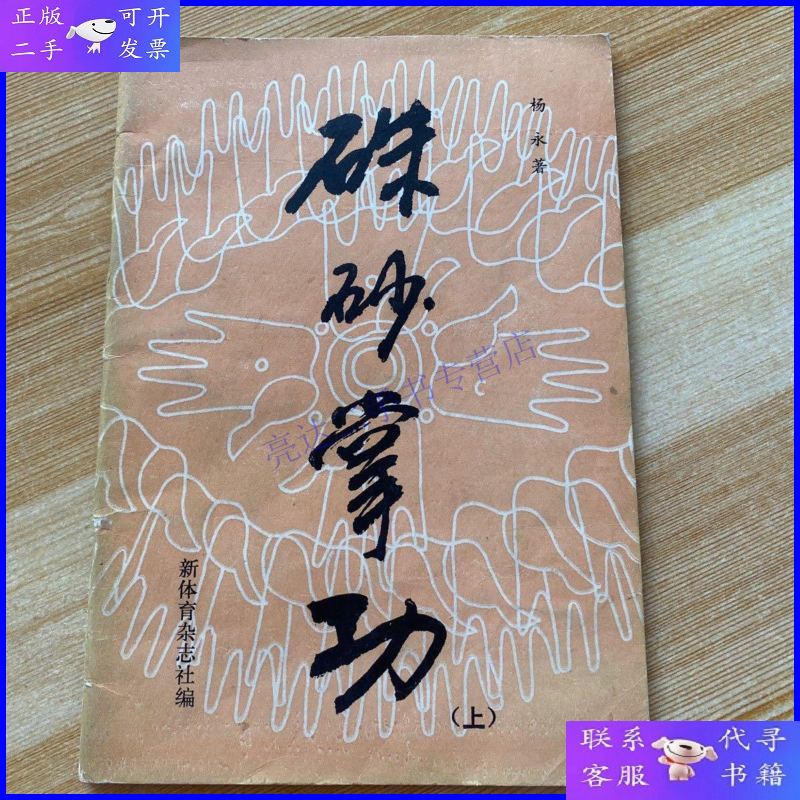 正版 可开
二手 发票
杨永著
硃砂掌功
（上）
新体育杂志社编
书专营店
联系 代寻
客服 书籍